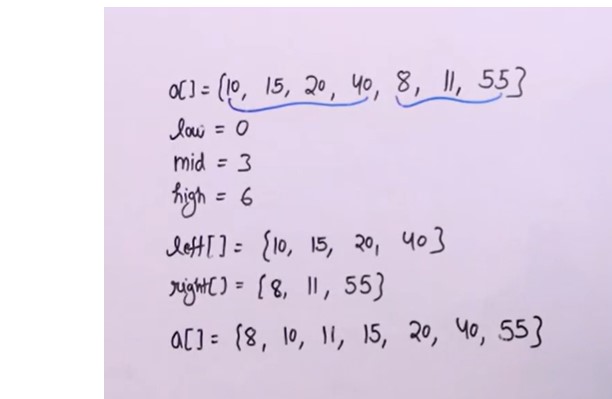 a[] = {10, 15, 20, 40, 8, 11, 55}
low = 0
mid = 3
high = 6
left[] = {10, 15, 20, 40}
right[] = {8, 11, 55}
a[] = {8, 10, 11, 15, 20, 40, 55}